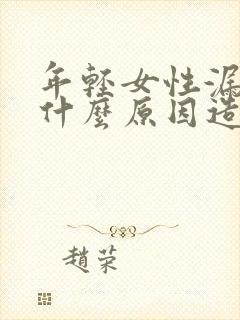 年輕女性漏
什麼原因造
趙荣